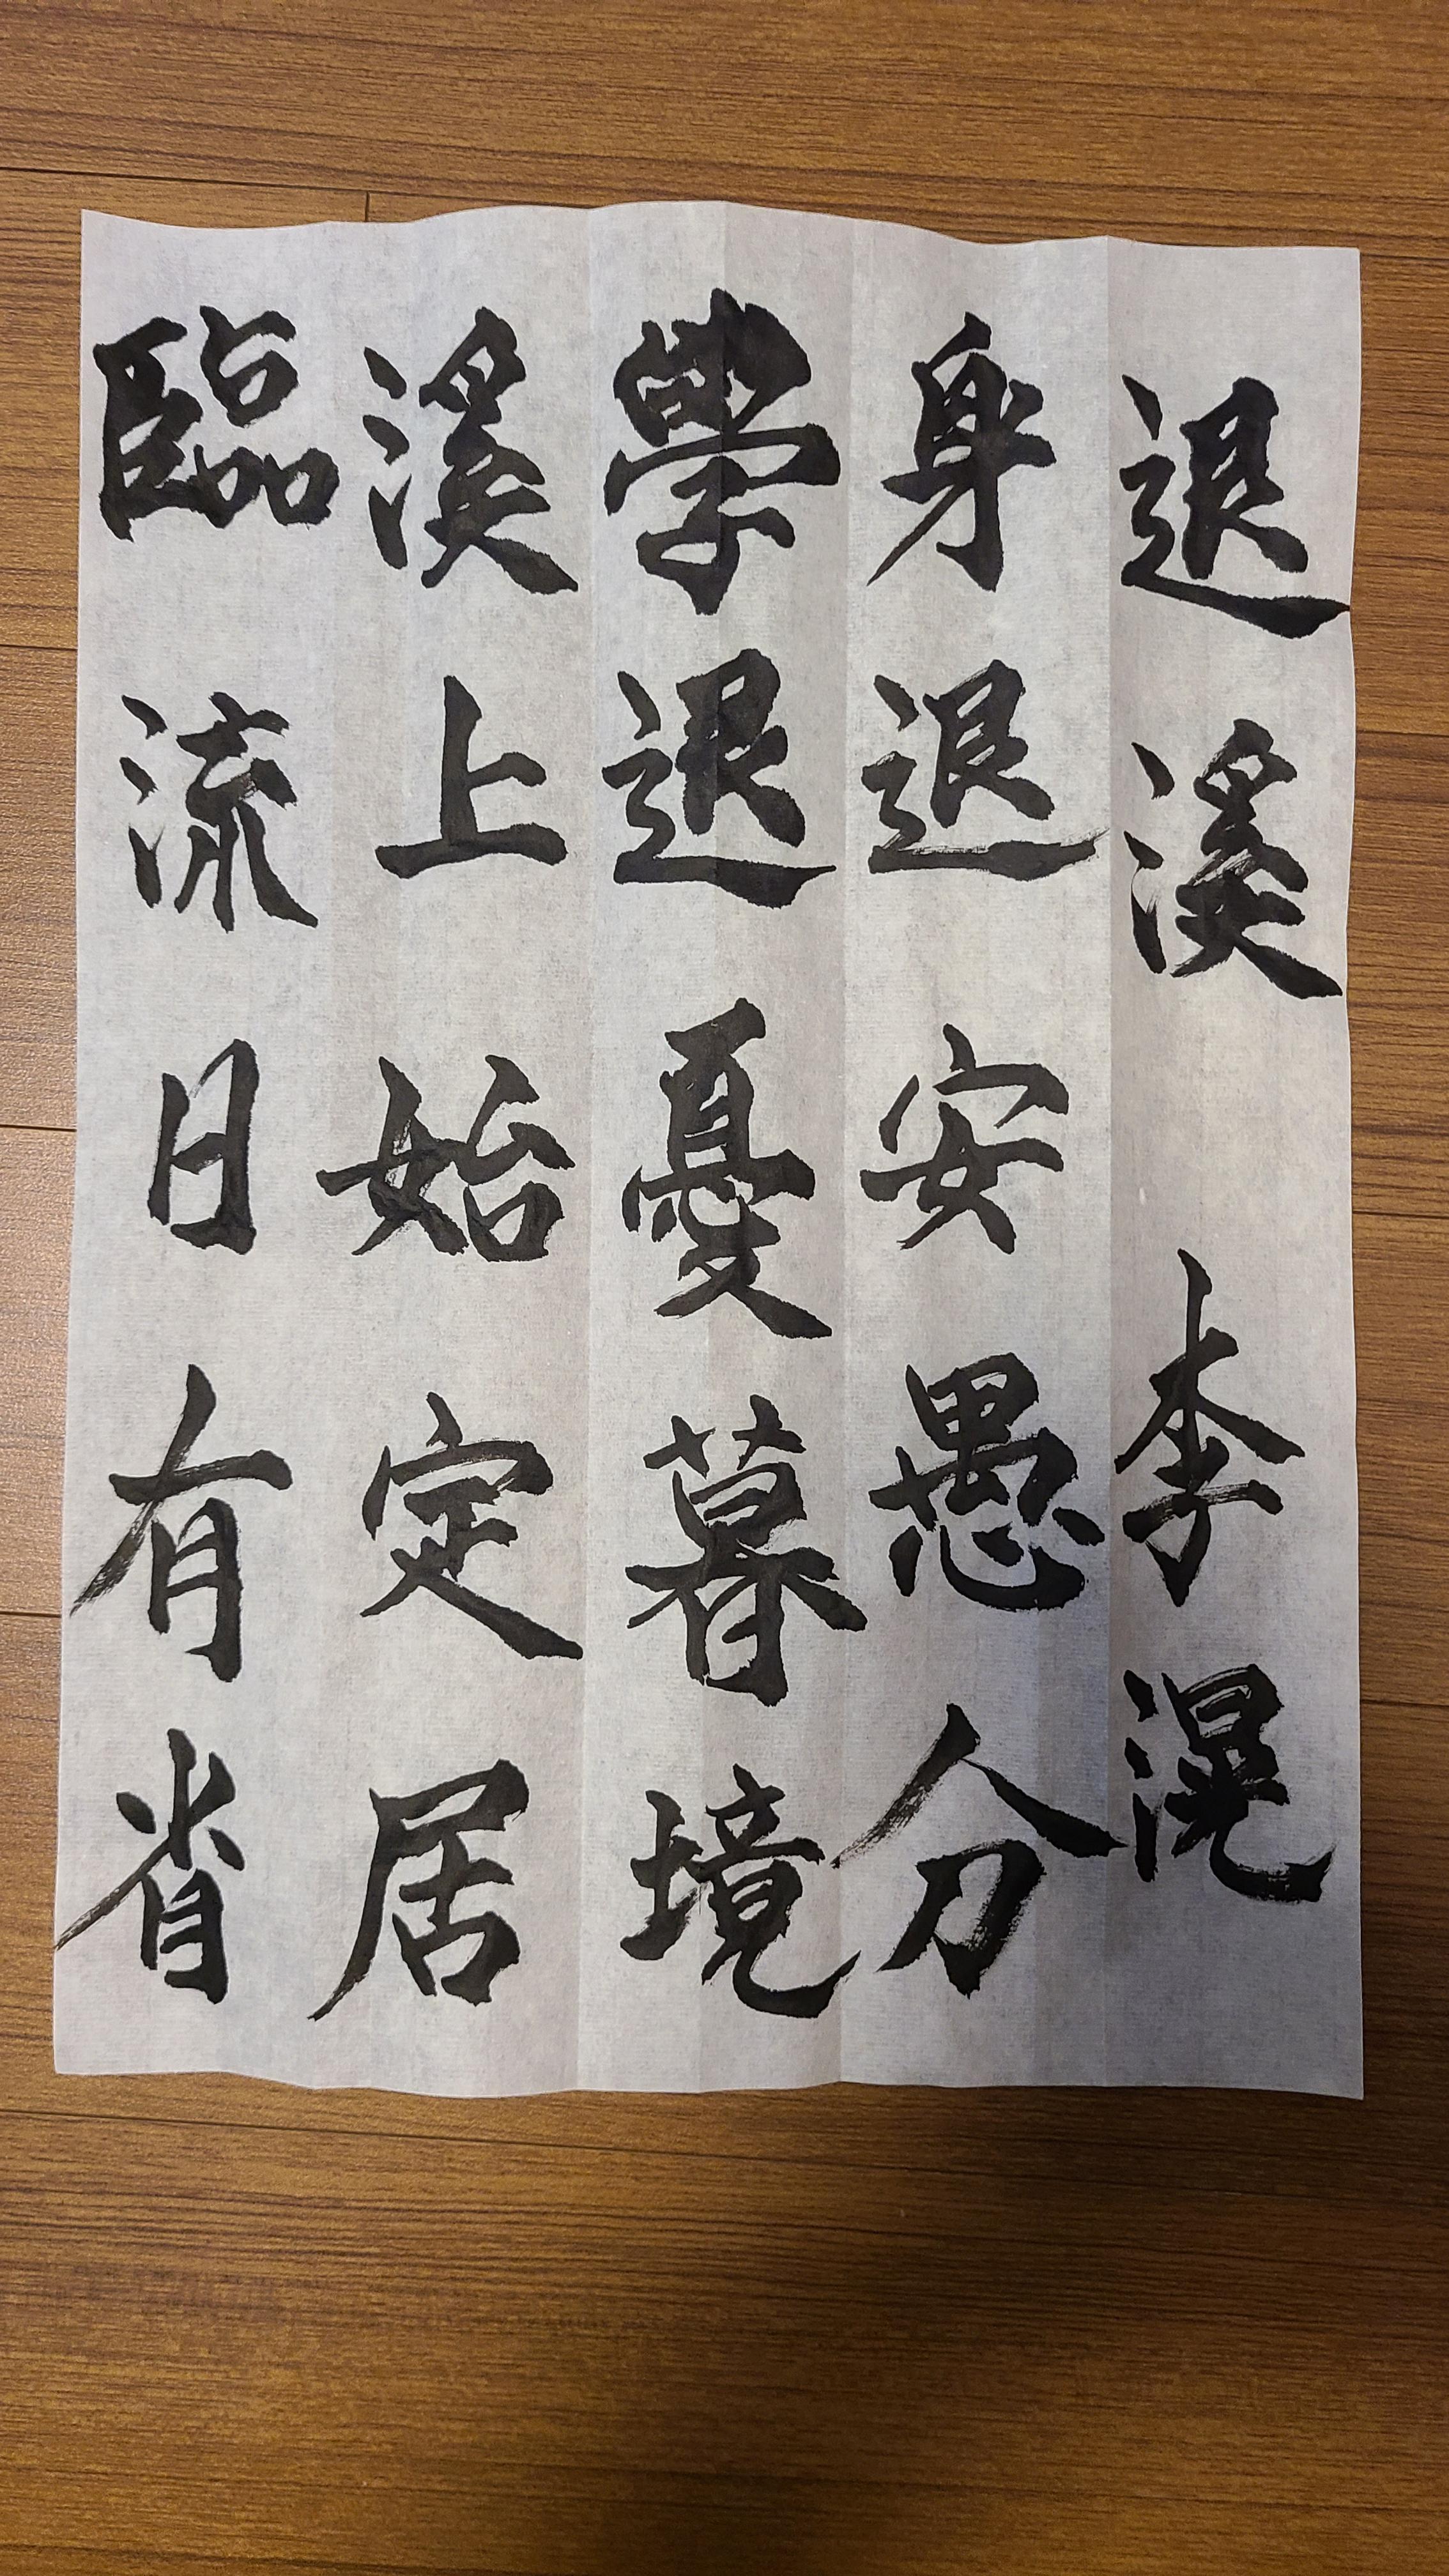 退溪 李滉
身退安愚分
學退憂暮境
溪上始定居
臨流日有省